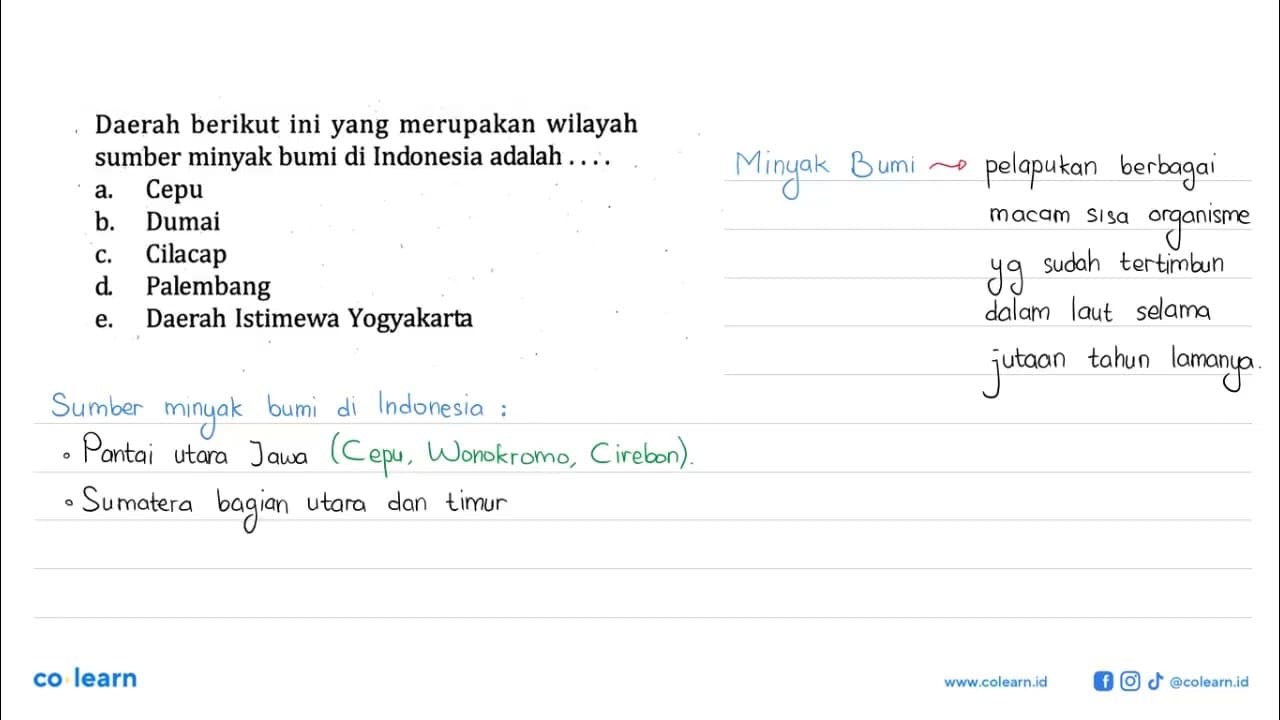 Daerah berikut ini yang merupakan wilayah
sumber minyak bumi di Indonesia adalah ....
a. Cepu
b. Dumai
c. Cilacap
d. Palembang
e. Daerah Istimewa Yogyakarta
Minyak Bumi → pelapukan berbagai
macam sisa organisme
yg sudah tertimbun
dalam laut selama
jutaan tahun lamanya.
Sumber minyak bumi di Indonesia :
• Pantai utara Jawa (Cepu, Wonokromo, Cirebon).
• Sumatera bagian utara dan timur
co learn
www.colearn.id
@colearn.id